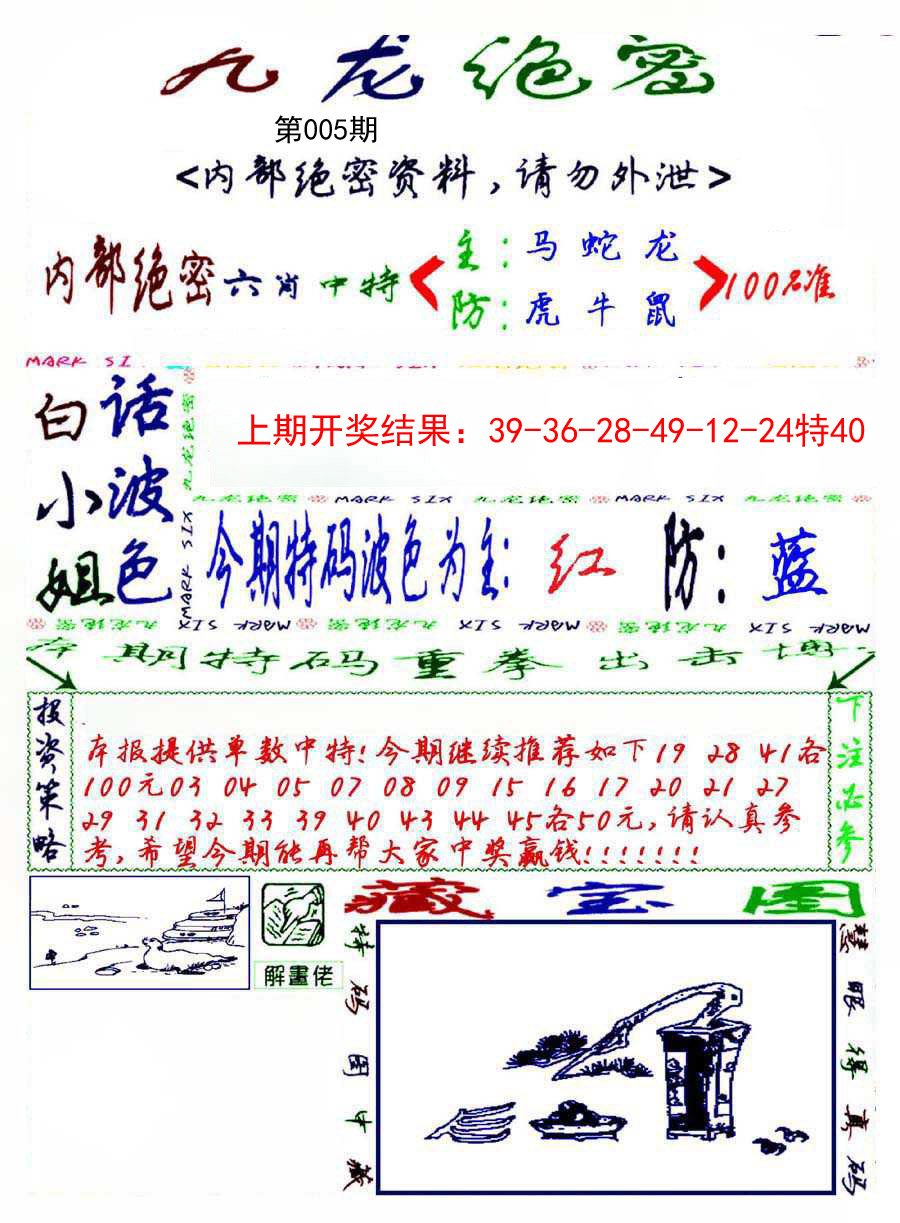 九龙绝密
第005期
<内部绝密资料，请勿外泄>
内部绝密六肖中特
主：马 蛇 龙
防：虎 牛 鼠
100%准
MARK SI
白话
小波
姐色
九龙绝密
MARK SIX
上期开奖结果：39-36-28-49-12-24特40
九龙绝密 MARK SIX 九龙绝密 MARK SIX 九龙绝密
今期特码波色为主：红 防：蓝
九龙绝密 MARK SIX MARK 九龙绝密 九龙绝密 SIX MARK 九龙绝密 九龙绝密 SIX MARK
本期特码重拳出击博
投资策略
本报提供单数中特！今期继续推荐如下19 28 41各
100元03 04 05 07 08 09 15 16 17 20 21 27
29 31 32 33 39 40 43 44 45各50元，请认真参
考，希望今期能再帮大家中奖赢钱！！！！！！！
下注必参
解畫佬
藏宝图
特码图中藏
慧眼得真码